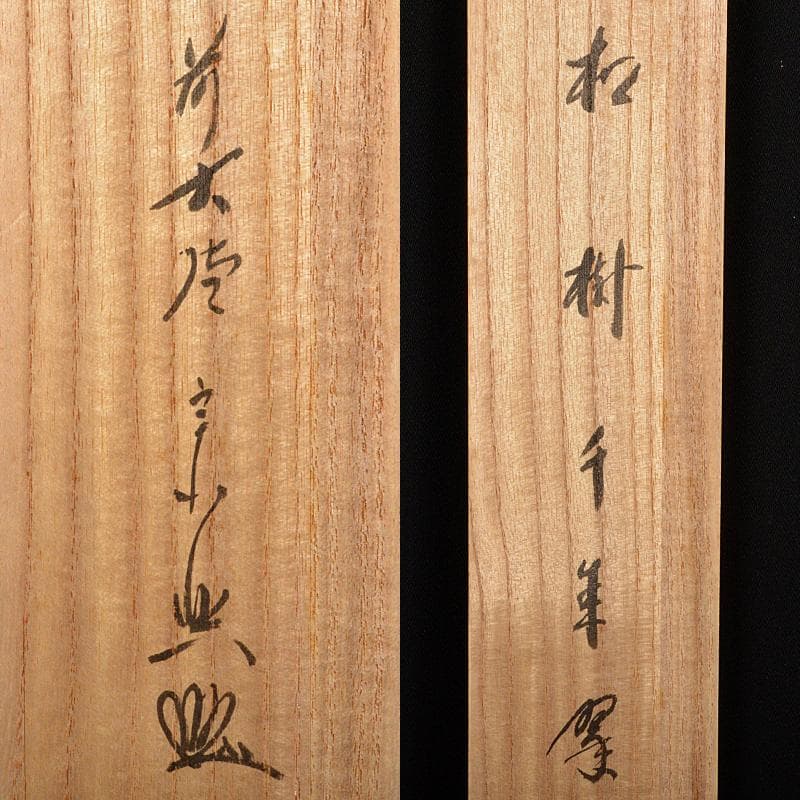 松樹千年翠
前大徳 宗興